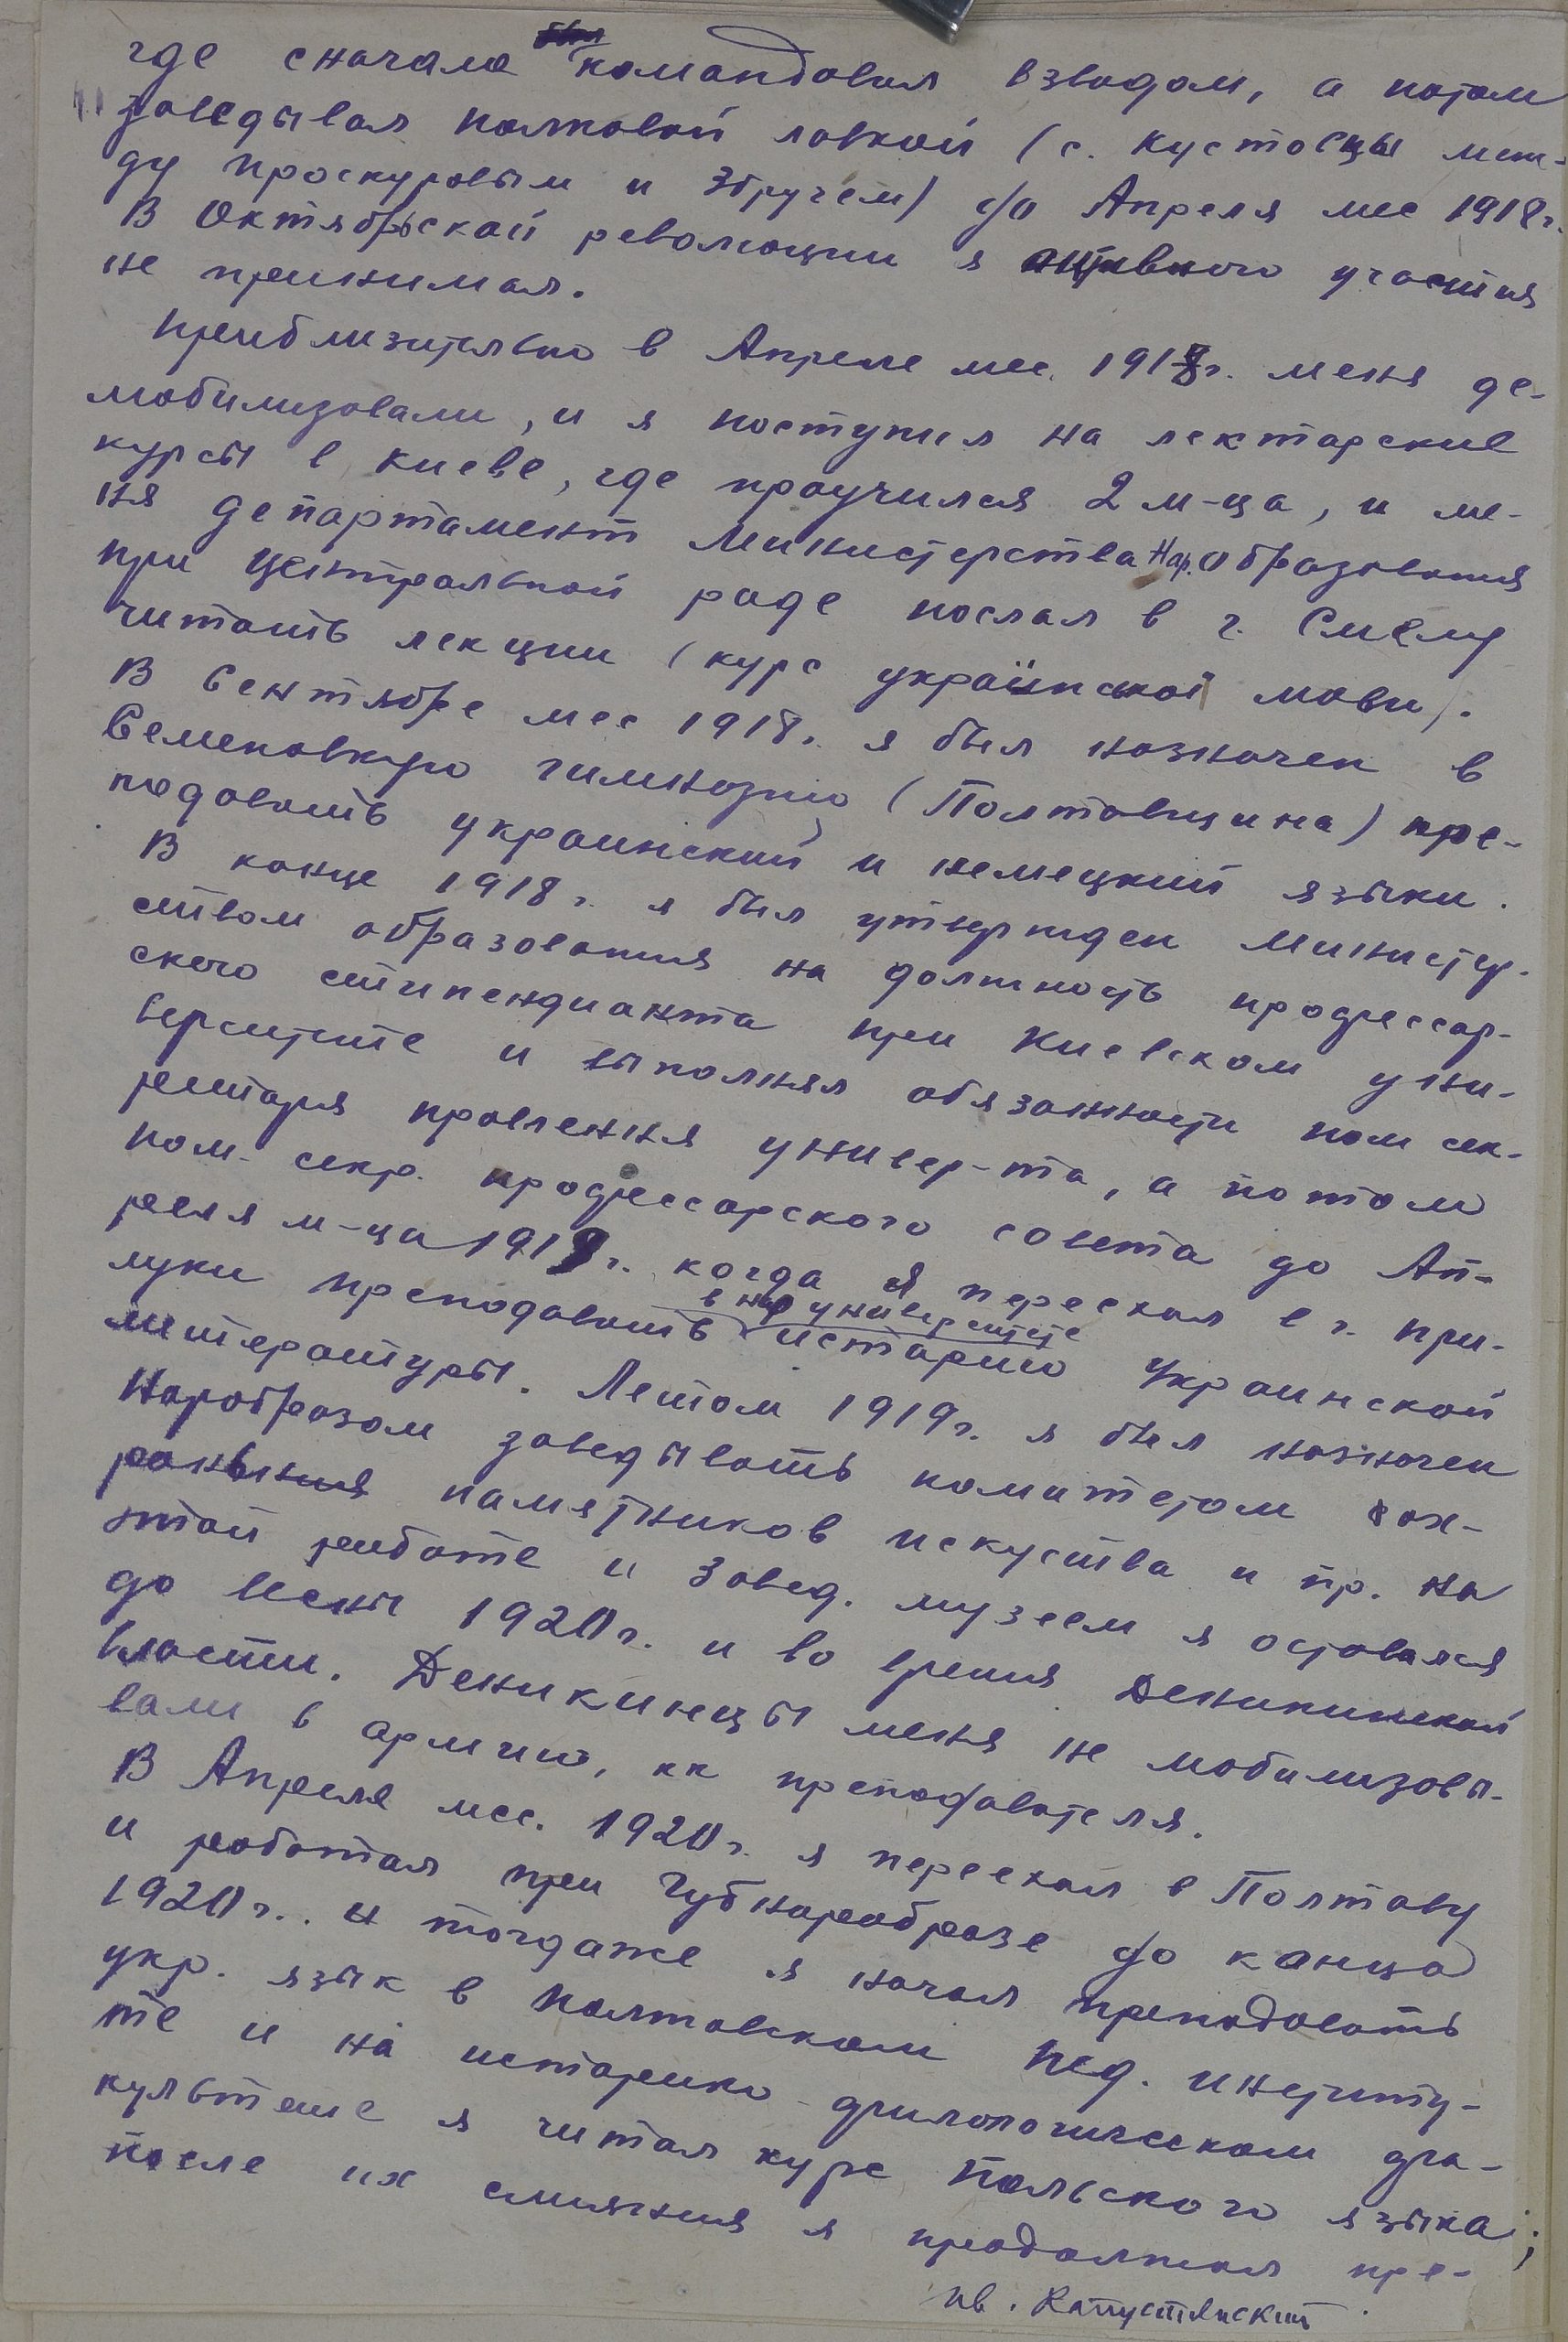 где сначала командовал взводом, а потом
заведывал полковой лавкой (с. Кустовцы меж-
ду Проскуровым и Збручем) до Апреля мес 1918г.
В Октябрьской революции я активного участия
не принимал.
Приблизительно в Апреле мес. 1918г. меня де-
мобилизовали, и я поступил на лекторские
курсы в Киеве, где проучился 2 м-ца, и ме-
ня департамент Министерства Нар. Образования
при Центральной раде послал в г. Смелу
читать лекции (курс української мови).
В Сентябре мес 1918г. я был назначен в
Семеновкую гимназию (Полтавщина) пре-
подавать украинский и немецкий языки.
В конце 1918г. я был утвержден Министер-
ством образования на должность профессор-
ского стипендианта при Киевском уни-
верситете и выполнял обязанности пом сек-
ретаря правления универ-та, а потом
пом. секр. профессорского совета до Ап-
реля м-ца 1919г. когда я переехал в г. При-
луки преподавать в нар университете историю Украинской
литературы. Летом 1919г. я был назначен
Наробразом заведывать комитетом сох-
ранения памятников искуства и пр. На
этой работе и завед. музеем я оставался
до весны 1920г. и во время Деникинской
власти. Деникинцы меня не мобилизовы-
вали в армию, кк преподавателя.
В Апреле мес. 1920г. я переехал в Полтаву
и работал при Губнаробразе до конца
1920г.. и тогдаже я начал преподавать
укр. язык в Полтавском Пед. институ-
те и на историко-филологическом фа-
культете я читал курс Польского языка;
после их слияния я продолжал пре-
Ив. Капустянский.